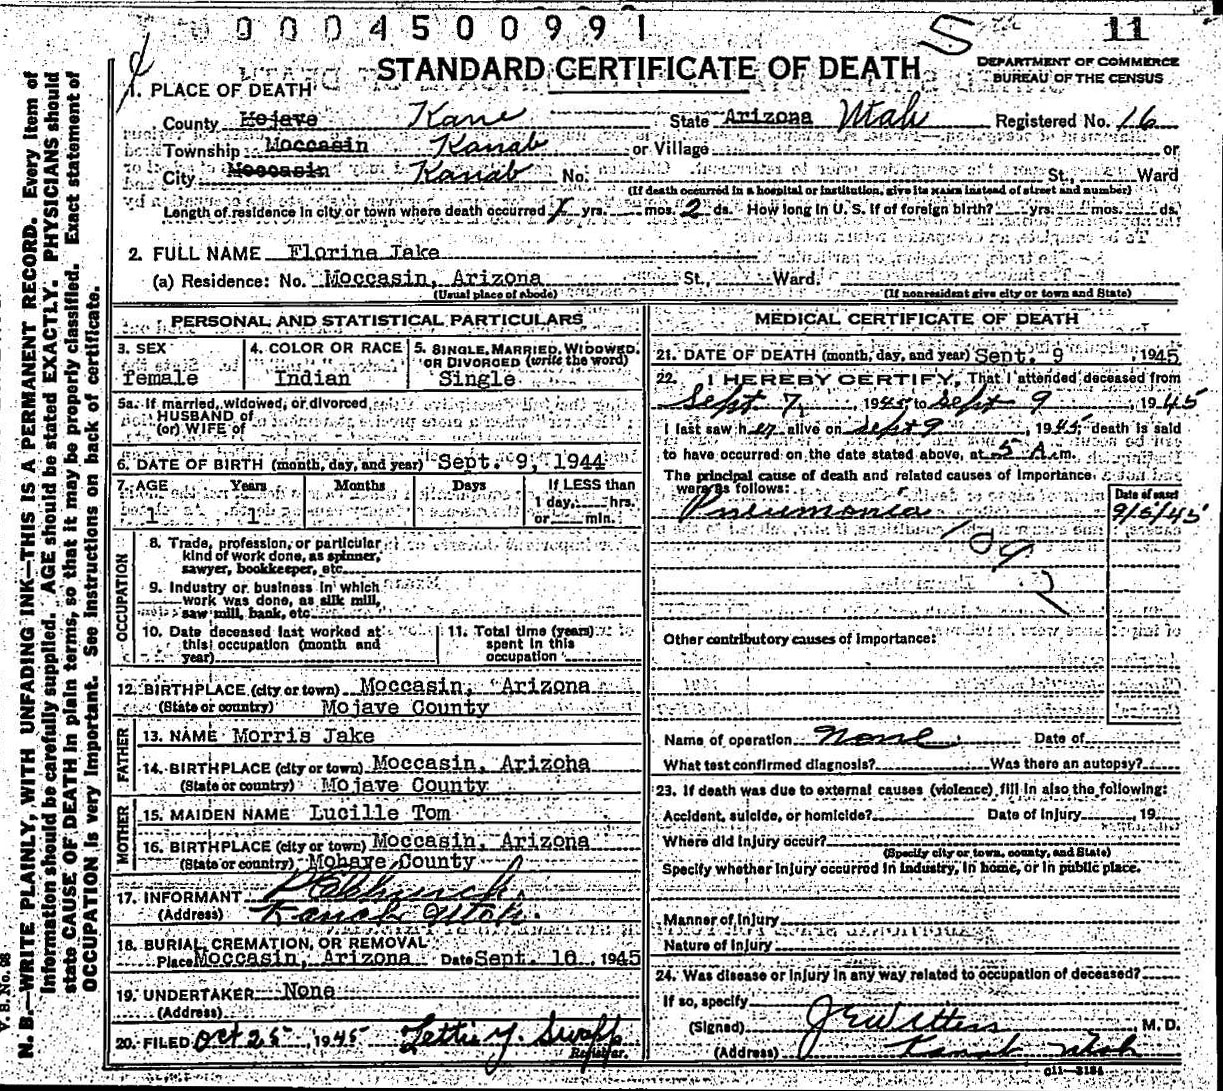 0 0 0 4 5 0 0 9 9 1
11
STANDARD CERTIFICATE OF DEATH
DEPARTMENT OF COMMERCE
BUREAU OF THE CENSUS
1. PLACE OF DEATH
County Mojave Kane State Arizona Utah Registered No. 16
Township Moccasin Kanab or Village or
City Moccasin Kanab No. St., Ward
(If death occurred in a hospital or institution, give its NAME instead of street and number)
Length of residence in city or town where death occurred yrs. mos. 2 ds. How long in U. S. if of foreign birth? yrs. mos. ds.
2. FULL NAME Florine Jake
(a) Residence: No. Moccasin, Arizona St., Ward.
(Usual place of abode) (If nonresident give city or town and State)
PERSONAL AND STATISTICAL PARTICULARS
3. SEX 4. COLOR OR RACE 5. SINGLE, MARRIED, WIDOWED, OR DIVORCED (write the word)
female Indian Single
5a. If married, widowed, or divorced
HUSBAND of
(or) WIFE of
6. DATE OF BIRTH (month, day, and year) Sept. 9, 1944
7. AGE Years Months Days If LESS than
1 day, hrs.
1 1 or min.
OCCUPATION
8. Trade, profession, or particular
kind of work done, as spinner,
sawyer, bookkeeper, etc.
9. Industry or business in which
work was done, as silk mill,
saw mill, bank, etc.
10. Date deceased last worked at
this occupation (month and
year)
11. Total time (years)
spent in this
occupation
12. BIRTHPLACE (city or town) Moccasin, Arizona
(State or country) Mojave County
FATHER
13. NAME Morris Jake
14. BIRTHPLACE (city or town) Moccasin, Arizona
(State or country) Mojave County
MOTHER
15. MAIDEN NAME Lucille Tom
16. BIRTHPLACE (city or town) Moccasin, Arizona
(State or country) Mohave County
17. INFORMANT
(Address) Kanab Utah.
18. BURIAL, CREMATION, OR REMOVAL
Place Moccasin, Arizona Date Sept. 10, 1945
19. UNDERTAKER None
(Address)
20. FILED Oct 25, 1945 Lettie Y. Swapp
Registrar.
MEDICAL CERTIFICATE OF DEATH
21. DATE OF DEATH (month, day, and year) Sept. 9, 1945
22. I HEREBY CERTIFY, That I attended deceased from
Sept 7, 1945 to Sept 9, 1945
I last saw her alive on Sept 9, 1945, death is said
to have occurred on the date stated above, at 5 A.m.
The principal cause of death and related causes of importance
were as follows:
Date of onset
Pneumonia 9/6/45
109
Other contributory causes of importance:
Name of operation None Date of
What test confirmed diagnosis? Was there an autopsy?
23. If death was due to external causes (violence) fill in also the following:
Accident, suicide, or homicide? Date of injury , 19
Where did injury occur?
(Specify city or town, county, and State)
Specify whether injury occurred in industry, in home, or in public place.
Manner of injury
Nature of injury
24. Was disease or injury in any way related to occupation of deceased?
If so, specify
(Signed) M. D.
(Address) Kanab, Utah
c11—3184
N. B.—WRITE PLAINLY, WITH UNFADING INK—THIS IS A PERMANENT RECORD. Every item of
information should be carefully supplied. AGE should be stated EXACTLY. PHYSICIANS should
state CAUSE OF DEATH in plain terms, so that it may be properly classified. Exact statement of
OCCUPATION is very important. See instructions on back of certificate.
V. S. No. 98